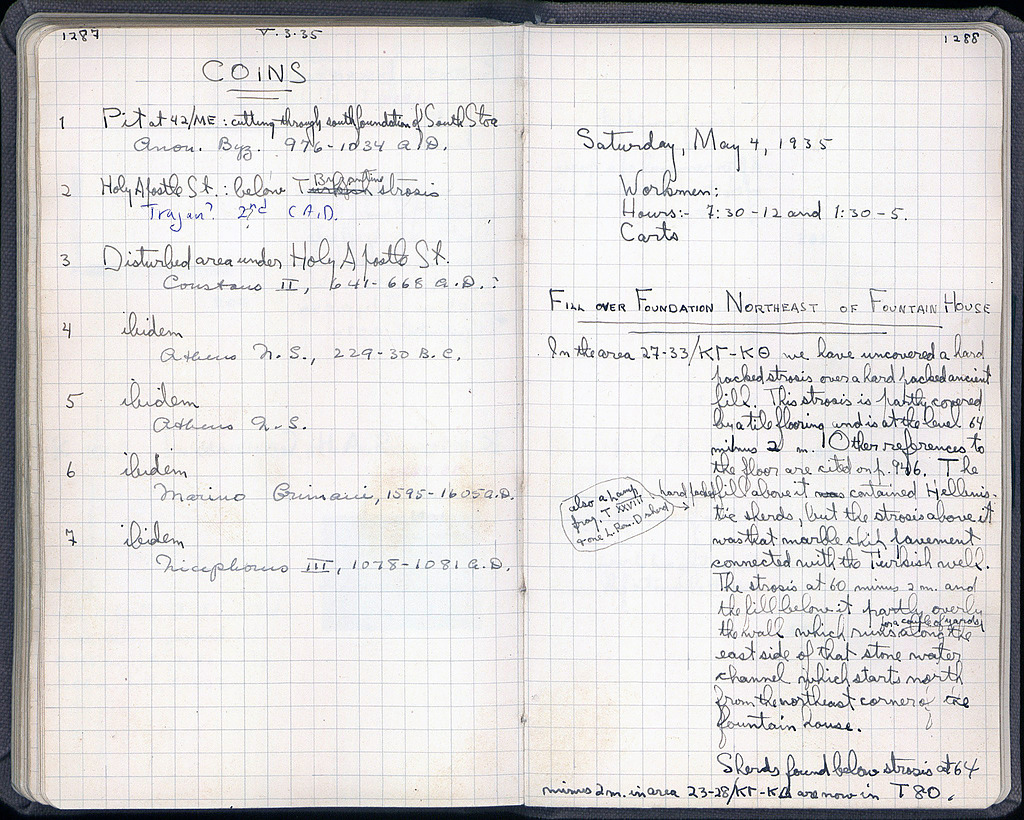 1287
V.3.35
COINS
1 Pit at 42/ME : cutting through south foundation of South Stoa
Anon. Byz. 976-1034 A.D.
2 Holy Apostle St. : below Byzantine strosis
Trajan? 2nd C A.D.
3 Disturbed area under Holy Apostle St.
Constans II, 641-668 A.D. :
4 ibidem
Athens N.S., 229-30 B.C.
5 ibidem
Athens N.S.
6 ibidem
Marino Grimani, 1595-1605 A.D.
7 ibidem
Nicephorus III, 1078-1081 A.D.
1288
Saturday, May 4, 1935
Workmen:
Hours:- 7:30-12 and 1:30-5.
Carts
FILL OVER FOUNDATION NORTHEAST OF FOUNTAIN HOUSE
In the area 27-33/ΚΓ-ΚΘ we have uncovered a hard
packed strosis over a hard packed ancient
fill. This strosis is partly covered
by a tile flooring and is at the level 64
minus 2 m. Other references to
the floor are cited on p. 946. The
hard packed fill above it contained Hellenis-
also a lamp
frag. T XXVIII
+ one L. Rom. D sherd
tic sherds, but the strosis above it
was that marble chip pavement
connected with the Turkish well.
The strosis at 60 minus 2 m. and
the fill below it partly overly
for a couple of yards
the wall which runs along the
east side of that stone water
channel which starts north
from the northeast corner of the
fountain house.
Sherds found below strosis at 64
minus 2 m. in area 23-28/ΚΓ-ΚΔ are now in T 80.